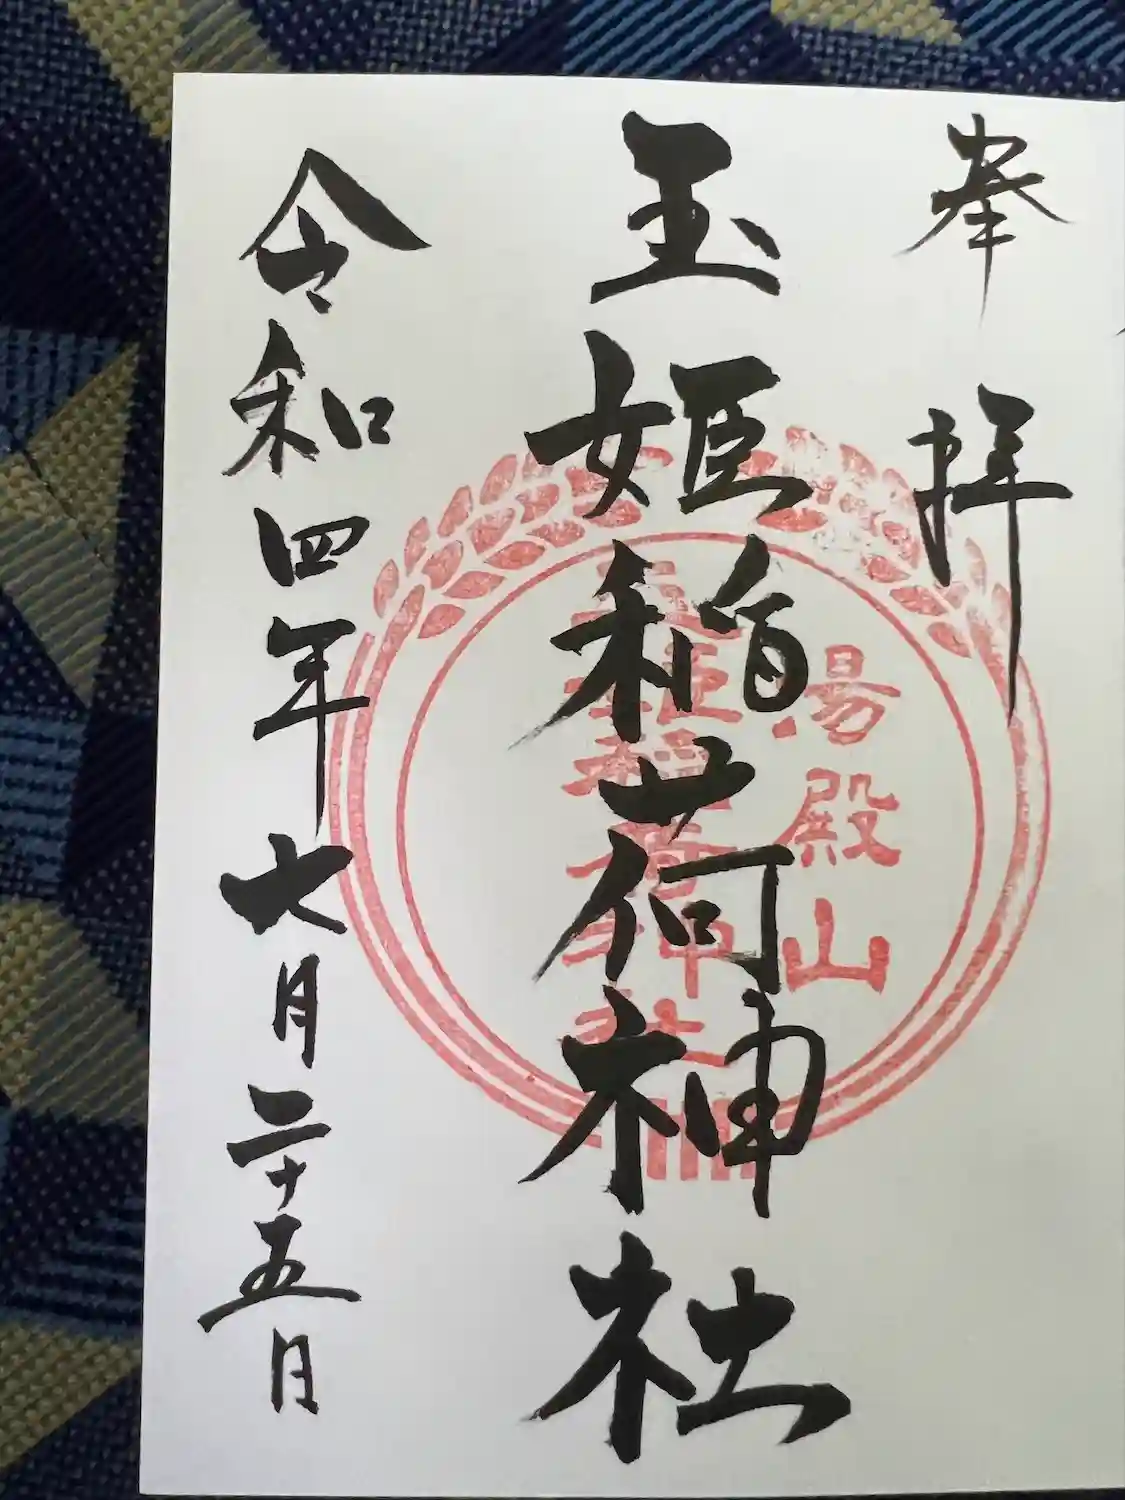 奉拝
玉姫稲荷神社
令和四年七月二十五日
湯殿山
玉姫稲荷神社